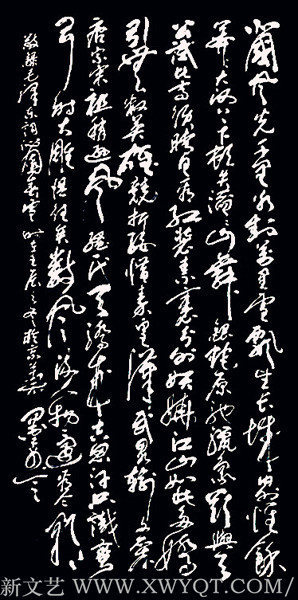 北國风光千里冰封万里雪飘望长城内外惟餘
莽莽大河上下顿失滔滔山舞银蛇原驰蜡象欲与天
公试比高须晴日看红装素裹分外妖娆江山如此多娇
引无数英雄竞折腰惜秦皇汉武略输文采
唐宗宋祖稍逊风骚一代天骄成吉思汗只识弯
弓射大雕俱往矣数风流人物还看今朝
敬録毛泽东词沁園春雪时在壬辰之冬於京華
新文艺 WWW.XWYQT.COM/